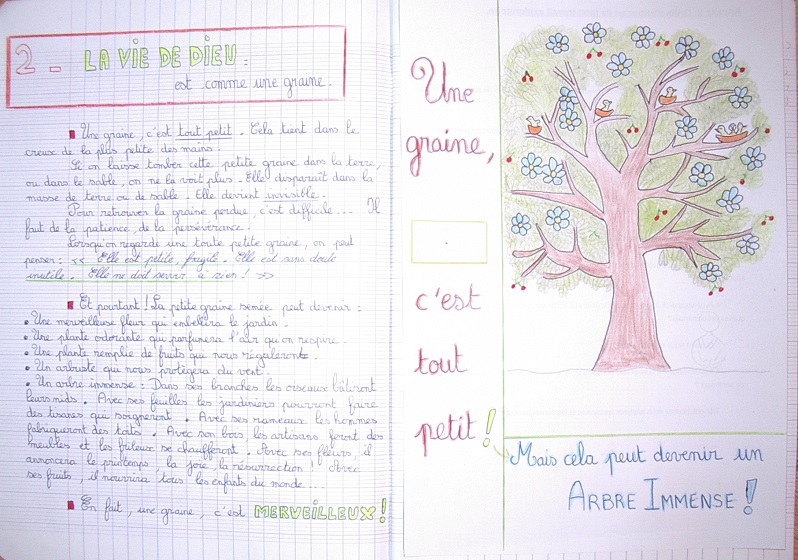 2 - LA VIE DE DIEU :
est comme une graine.
Une graine, c'est tout petit. Cela tient dans le
creux de la plus petite des mains.
Si on laisse tomber cette petite graine dans la terre,
ou dans le sable, on ne la voit plus. Elle disparaît dans la
masse de terre ou de sable. Elle devient invisible.
Pour retrouver la graine perdue, c'est difficile... Il
faut de la patience, de la persévérance.
Lorsqu'on regarde une toute petite graine, on peut
penser : << Elle est petite, fragile. Elle est sans doute
inutile. Elle ne doit servir à rien ! >>
Et pourtant ! La petite graine semée peut devenir :
• Une merveilleuse fleur qui embellira le jardin.
• Une plante odorante qui parfumera l'air qu'on respire.
• Une plante remplie de fruits qui nous régalerons.
• Un arbuste qui nous protègera du vent.
• Un arbre immense : Dans ses branches les oiseaux bâtiront
leurs nids. Avec ses feuilles les jardiniers pourront faire
des tisanes qui soigneront. Avec ses rameaux les hommes
fabriqueront des toits. Avec son bois, les artisans feront des
meubles et les frileux se chaufferont. Avec ses fleurs, il
annoncera le printemps, la joie, la résurrection ! Avec
ses fruits, il nourrira tous les enfants du monde...
En fait, une graine, c'est MERVEILLEUX !
Une
graine,
c'est
tout
petit !
Mais cela peut devenir un
ARBRE IMMENSE !